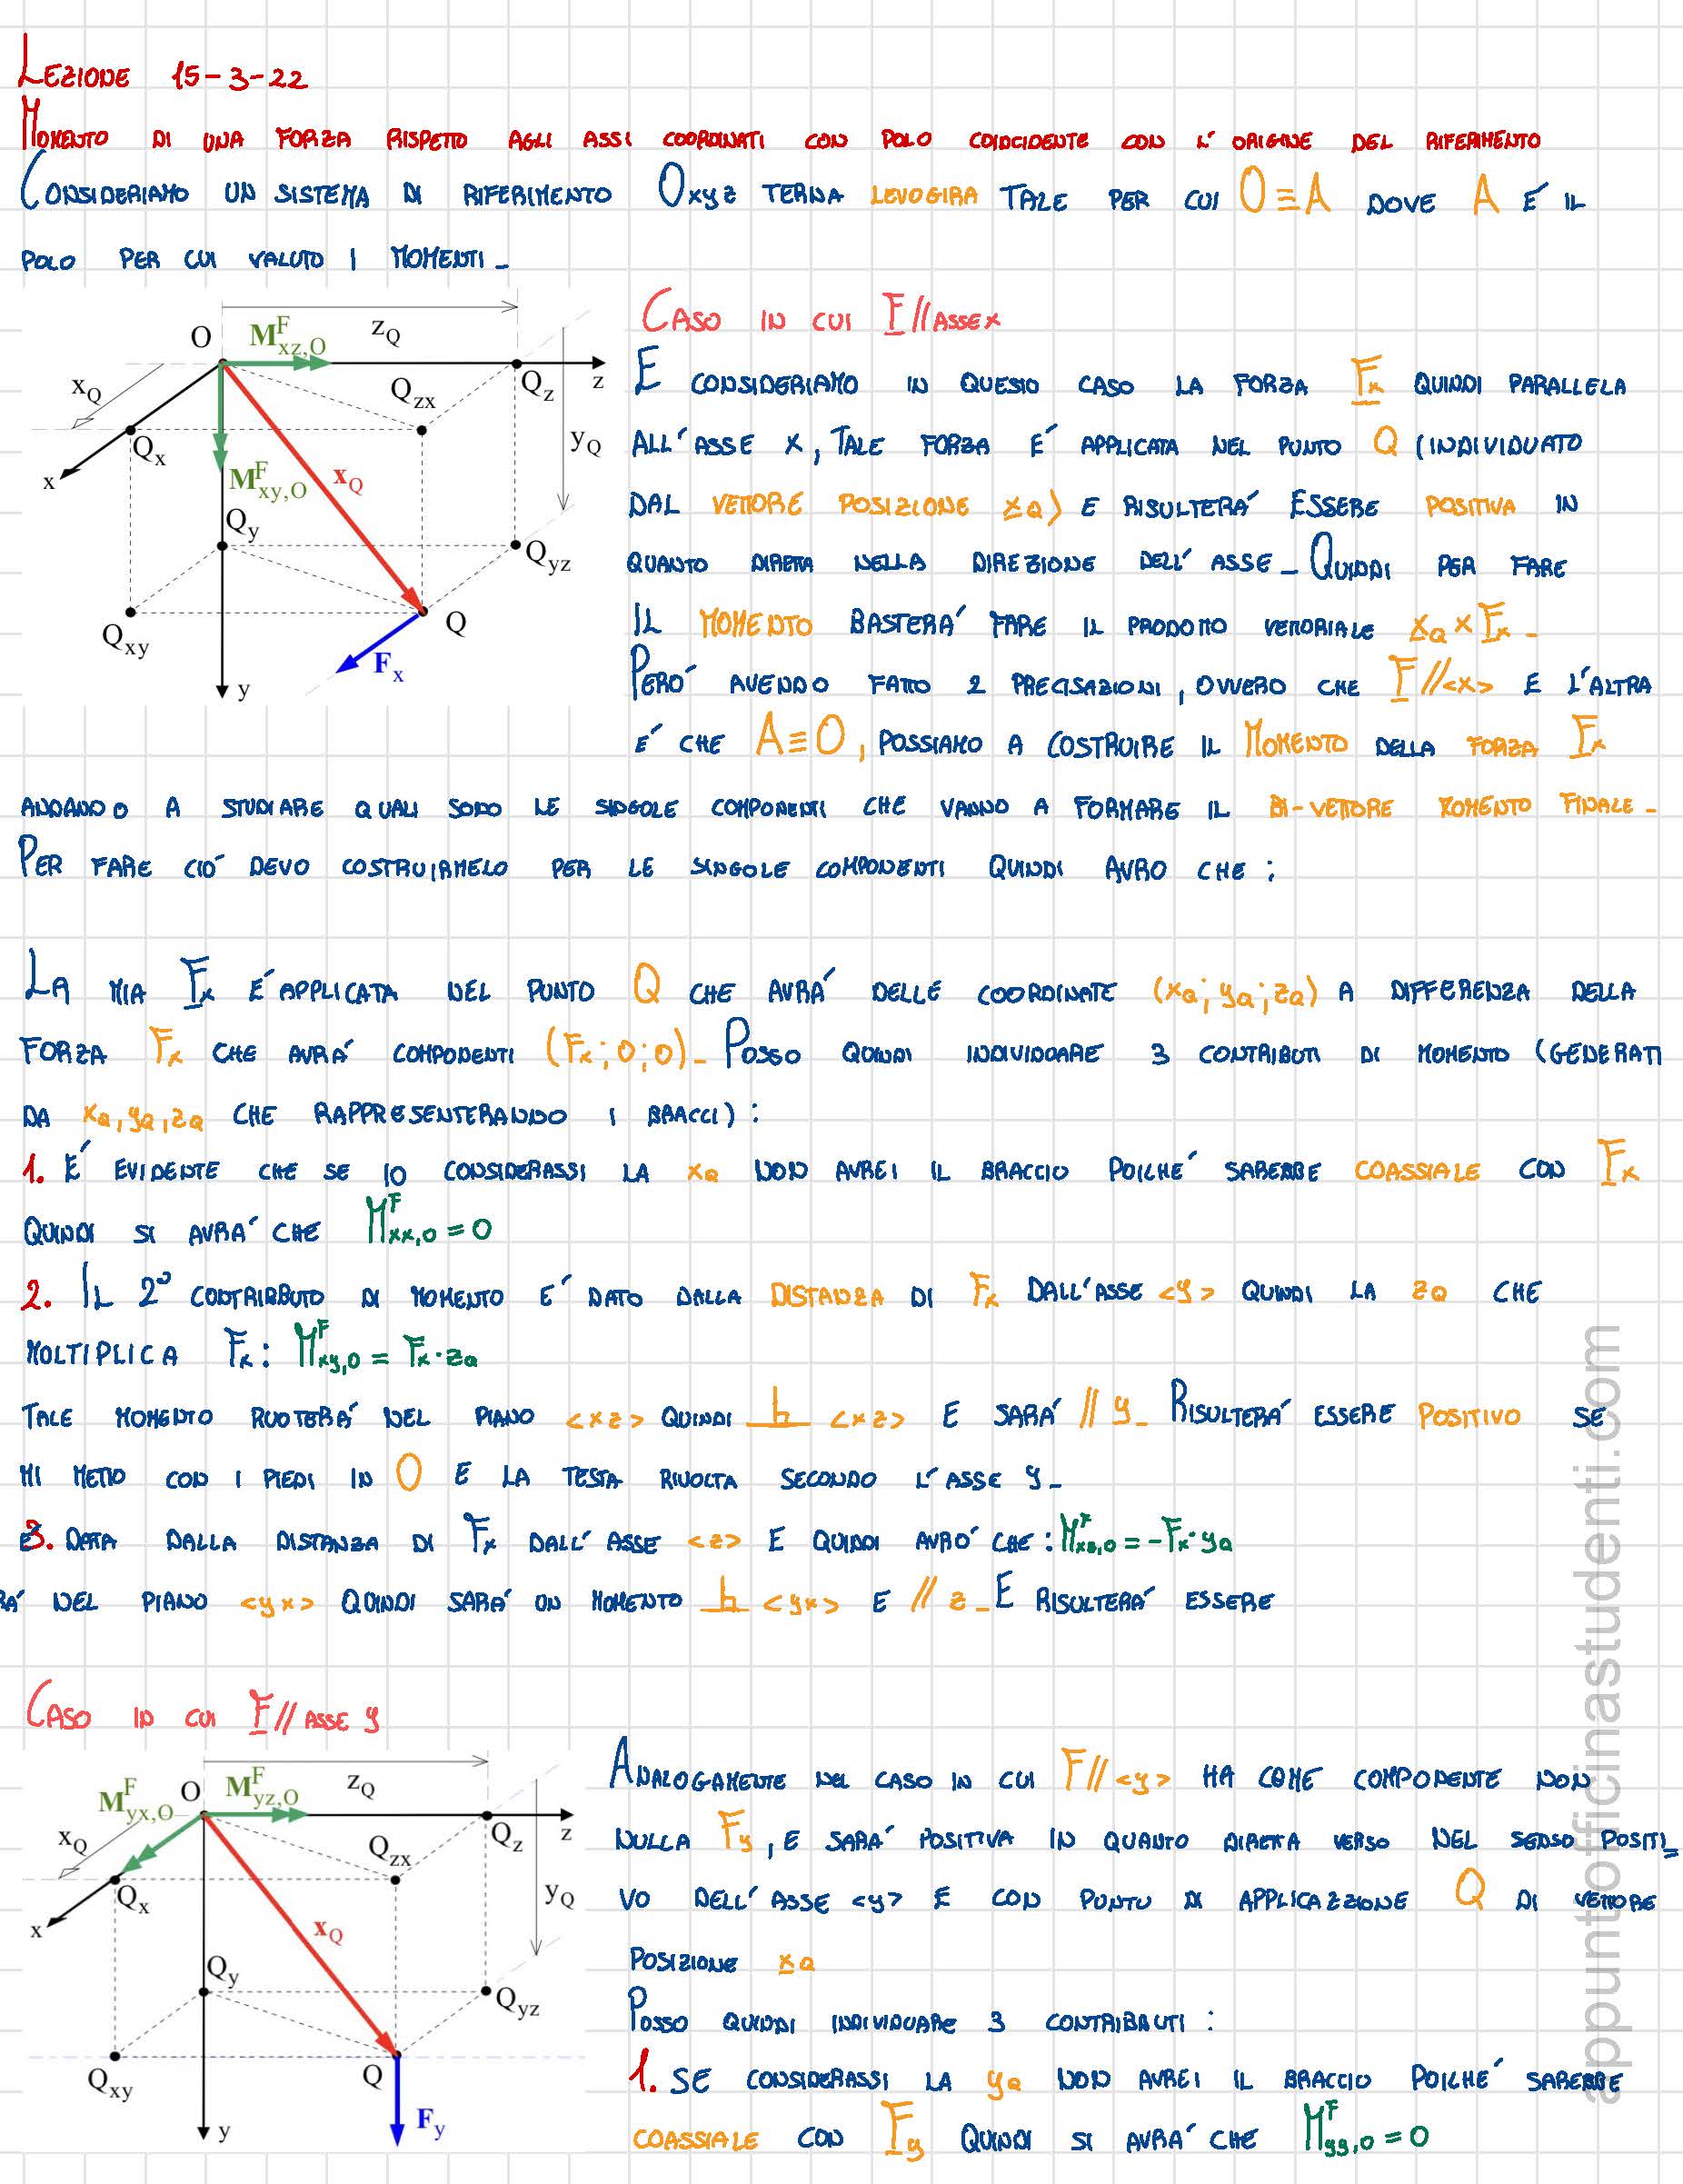 LEZIONE 15-3-22
MOMENTO DI UNA FORZA RISPETTO AGLI ASSI COORDINATI CON POLO COINCIDENTE CON L'ORIGINE DEL RIFERIMENTO
CONSIDERIAMO UN SISTEMA DI RIFERIMENTO Oxyz TERNA LEVOGIRA TALE PER CUI O≡A DOVE A É IL
POLO PER CUI VALUTO I MOMENTI_
O M^F_xz,O z_Q
x_Q Q_zx Q_z z
Q_x y_Q
x M^F_xy,O x_Q
Q_y
Q_yz
Q_xy Q
F_x
y
CASO IN CUI F // ASSE X
E CONSIDERIAMO IN QUESTO CASO LA FORZA F_x QUINDI PARALLELA
ALL'ASSE X, TALE FORZA É APPLICATA NEL PUNTO Q (INDIVIDUATO
DAL VETTORE POSIZIONE x_Q) E RISULTERÁ ESSERE POSITIVA IN
QUANTO DIRETTA NELLA DIREZIONE DELL'ASSE_ QUINDI PER FARE
IL MOMENTO BASTERÁ FARE IL PRODOTTO VETTORIALE x_Q × F_x _
PERÓ AVENDO FATTO 2 PRECISAZIONI, OVVERO CHE F // <x> E L'ALTRA
É CHE A≡O, POSSIAMO A COSTRUIRE IL MOMENTO DELLA FORZA F_x
ANDANDO A STUDIARE QUALI SONO LE SINGOLE COMPONENTI CHE VANNO A FORMARE IL BI-VETTORE MOMENTO FINALE_
PER FARE CIÓ DEVO COSTRUIRMELO PER LE SINGOLE COMPONENTI QUINDI AVRO CHE :
LA MIA F_x É APPLICATA NEL PUNTO Q CHE AVRÁ DELLE COORDINATE (x_Q; y_Q; z_Q) A DIFFERENZA DELLA
FORZA F_x CHE AVRÁ COMPONENTI (F_x; 0; 0)_ POSSO QUINDI INDIVIDUARE 3 CONTRIBUTI DI MOMENTO (GENERATI
DA x_Q, y_Q, z_Q CHE RAPPRESENTERANNO I BRACCI) :
1. É EVIDENTE CHE SE IO CONSIDERASSI LA x_Q NON AVREI IL BRACCIO POICHÉ SAREBBE COASSIALE CON F_x
QUINDI SI AVRÁ CHE M^F_xx,O = 0
2. IL 2° CONTRIBUTO DI MOMENTO É DATO DALLA DISTANZA DI F_x DALL'ASSE <y> QUINDI LA z_Q CHE
MOLTIPLICA F_x : M^F_xy,O = F_x · z_Q
TALE MOMENTO RUOTERÁ NEL PIANO <xz> QUINDI ⊥ <xz> E SARÁ // y_ RISULTERÁ ESSERE POSITIVO SE
MI METTO CON I PIEDI IN O E LA TESTA RIVOLTA SECONDO L'ASSE y_
3. DATA DALLA DISTANZA DI F_x DALL'ASSE <z> E QUINDI AVRÓ CHE : M^F_xz,O = -F_x · y_Q
RÁ NEL PIANO <yx> QUINDI SARÁ UN MOMENTO ⊥ <yx> E // z_ E RISULTERÁ ESSERE
CASO IN CUI F // ASSE y
M^F_yx,O O M^F_yz,O z_Q
x_Q Q_zx Q_z z
Q_x y_Q
x x_Q
Q_y
Q_yz
Q_xy Q
F_y
y
ANALOGAMENTE NEL CASO IN CUI F // <y> HA COME COMPONENTE NON
NULLA F_y, E SARÁ POSITIVA IN QUANTO DIRETTA VERSO NEL SENSO POSITI_
VO DELL'ASSE <y> E CON PUNTO DI APPLICAZZIONE Q DI VETTORE
POSIZIONE x_Q
POSSO QUINDI INDIVIDUARE 3 CONTRIBAUTI :
1. SE CONSIDERASSI LA y_Q NON AVREI IL BRACCIO POICHÉ SAREBBE
COASSIALE CON F_y QUINDI SI AVRÁ CHE M^F_yy,O = 0
appuntofficinastudenti.com